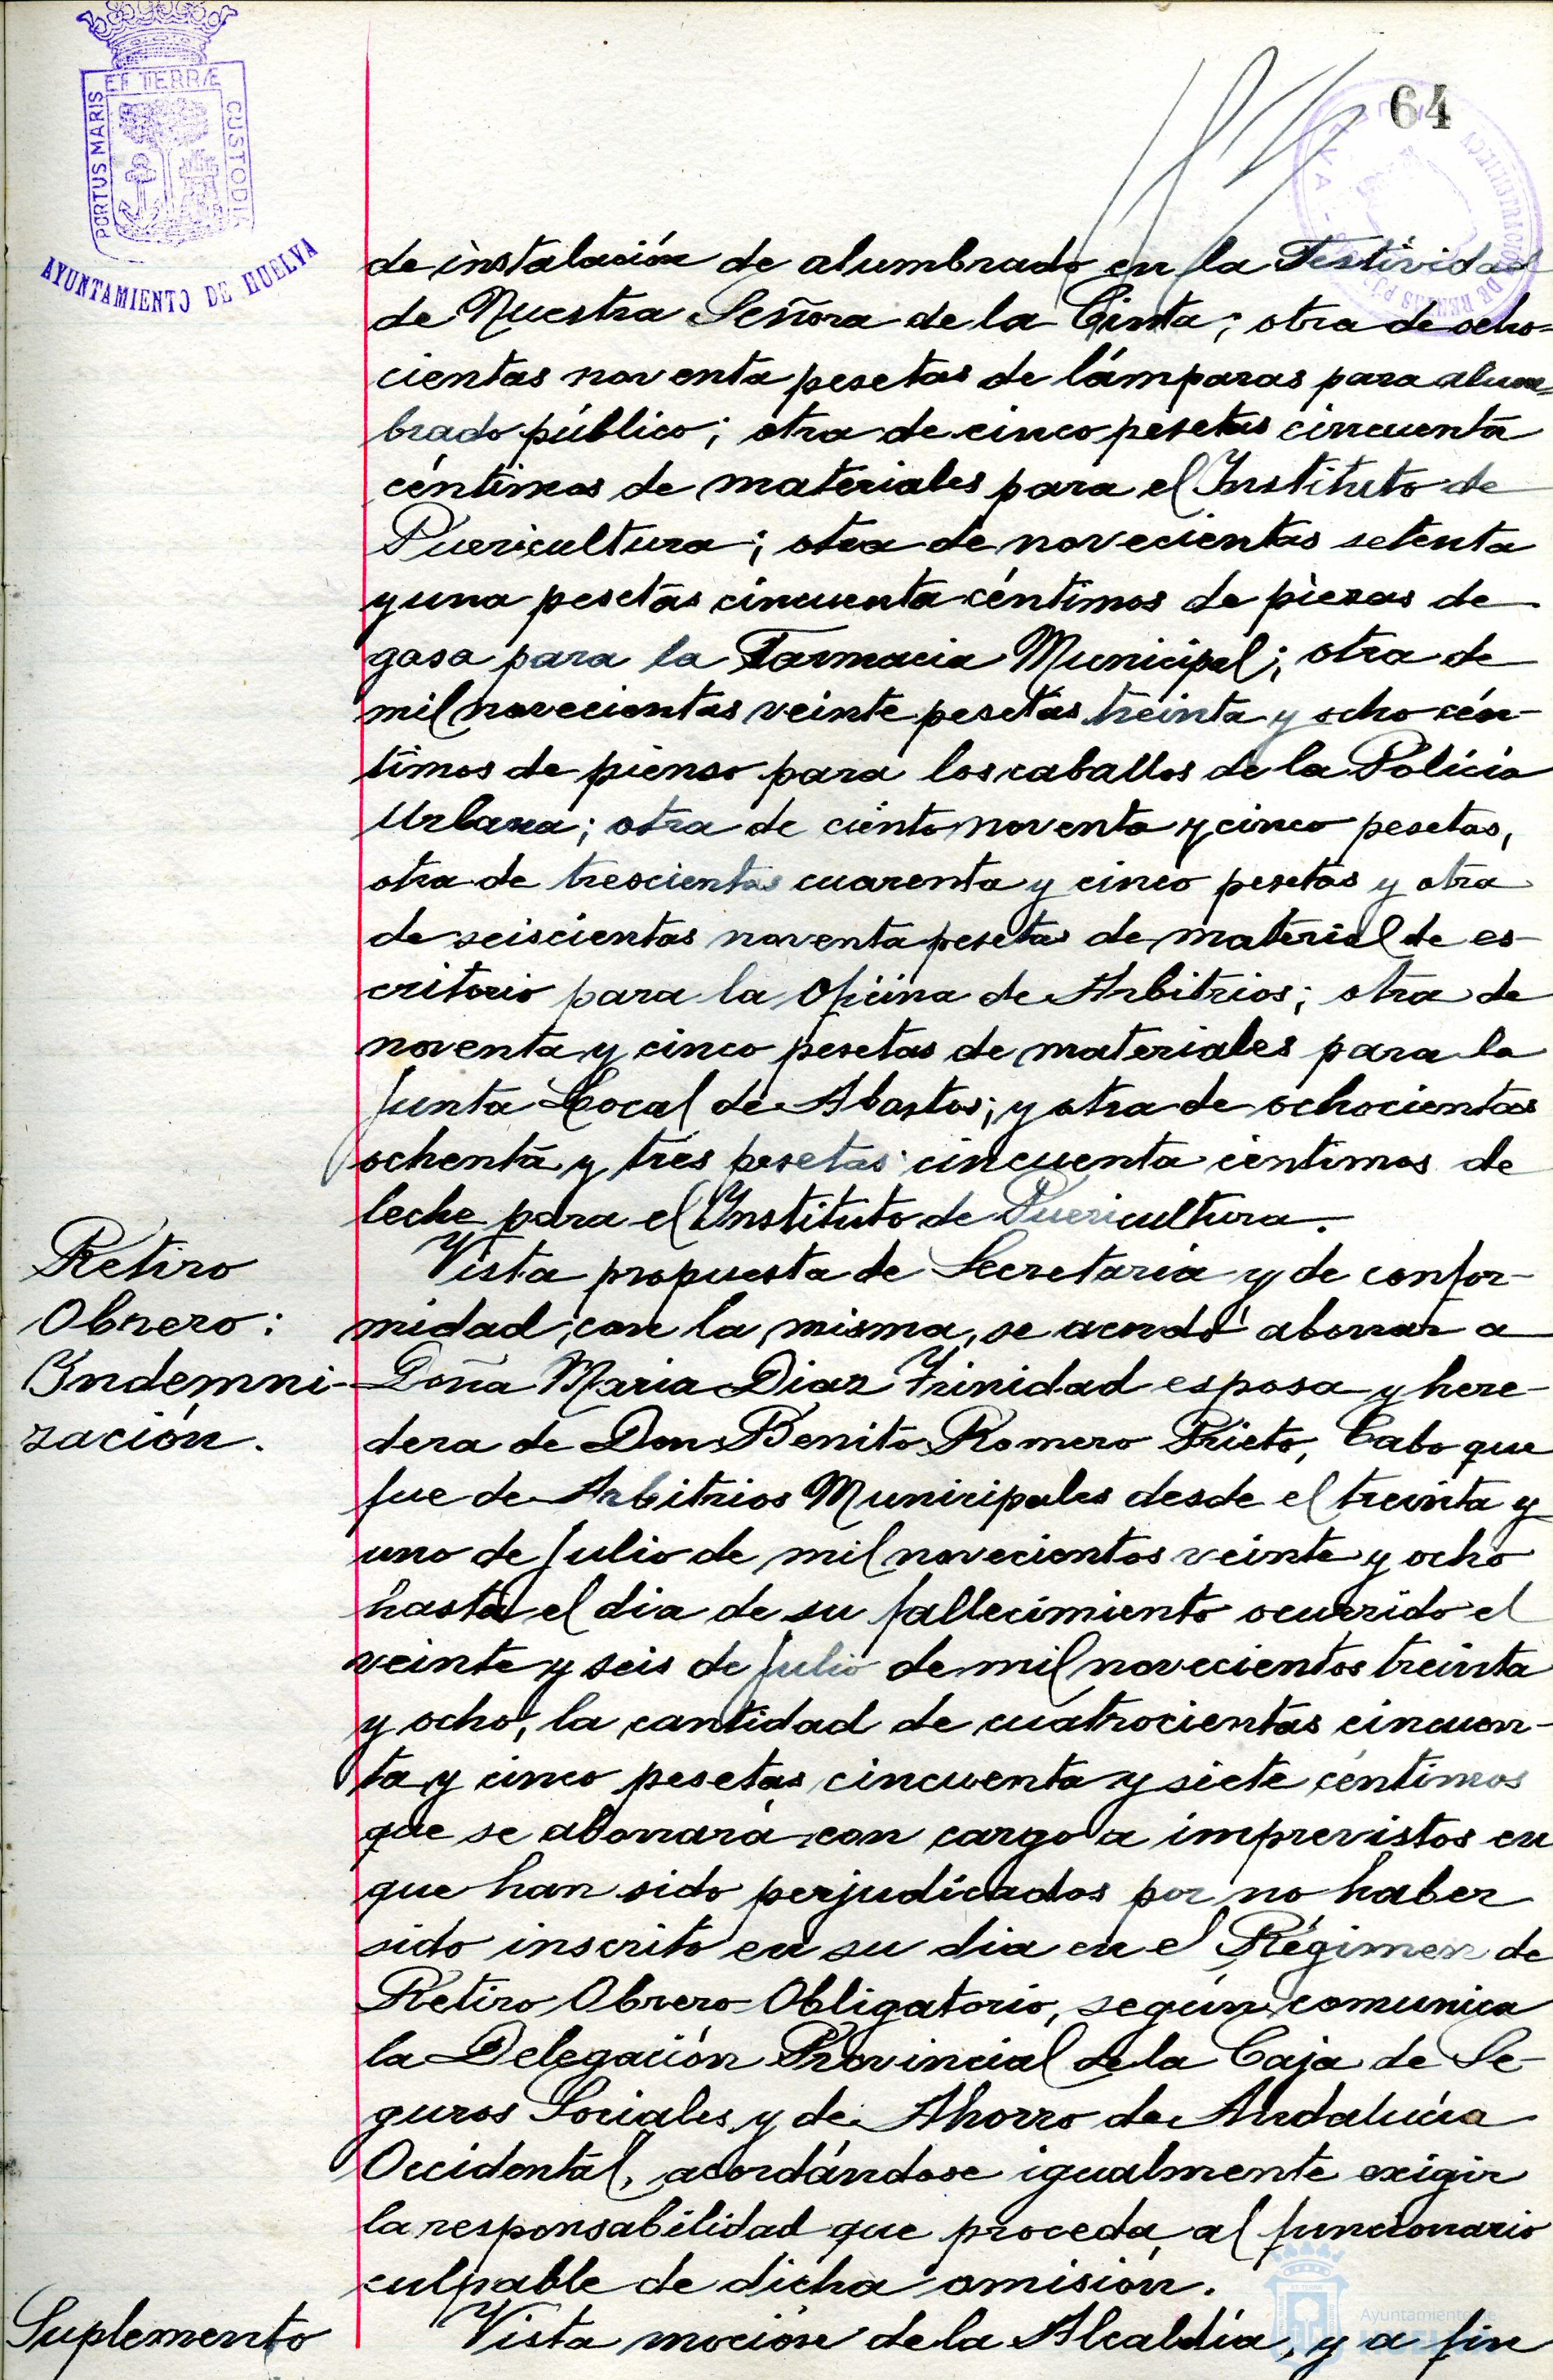 64
PORTUS MARIS ET TERRÆ CUSTODIA
AYUNTAMIENTO DE HUELVA
de instalación de alumbrado en la Festividad
de Nuestra Señora de la Cinta; otra de ocho-
cientas noventa pesetas de lámparas para alum-
brado público; otra de cinco pesetas cincuenta
céntimos de materiales para el Instituto de
Puericultura; otra de novecientas setenta
y una pesetas cincuenta céntimos de piezas de
gasa para la Farmacia Municipal; otra de
mil novecientas veinte pesetas treinta y ocho cén-
timos de pienso para los caballos de la Policia
Urbana; otra de ciento noventa y cinco pesetas,
otra de trescientas cuarenta y cinco pesetas y otra
de seiscientas noventa pesetas de material de es-
critorio para la Oficina de Arbitrios; otra de
noventa y cinco pesetas de materiales para la
Junta Local de Abastos; y otra de ochocientas
ochenta y tres pesetas cincuenta centimos de
leche para el Instituto de Puericultura.
Retiro
Obrero:
Indemni-
zación.
Vista propuesta de Secretaria y de confor-
midad con la misma, se acordó abonar a
Doña Maria Diaz Trinidad esposa y here-
dera de Don Benito Romero Prieto, Cabo que
fue de Arbitrios Municipales desde el treinta y
uno de Julio de mil novecientos veinte y ocho
hasta el dia de su fallecimiento ocurrido el
veinte y seis de Julio de mil novecientos treinta
y ocho, la cantidad de cuatrocientas cincuen-
ta y cinco pesetas cincuenta y siete céntimos
que se abonará con cargo a imprevistos en
que han sido perjudicados por no haber
sido inscrito en su dia en el Régimen de
Retiro Obrero Obligatorio, según comunica
la Delegación Provincial de la Caja de Se-
guros Sociales y de Ahorro de Andalucía
Occidental, acordándose igualmente exigir
la responsabilidad que proceda al funcionario
culpable de dicha omisión.
Suplemento
Vista moción de la Alcaldía, y a fin
Ayuntamiento de
HUELVA